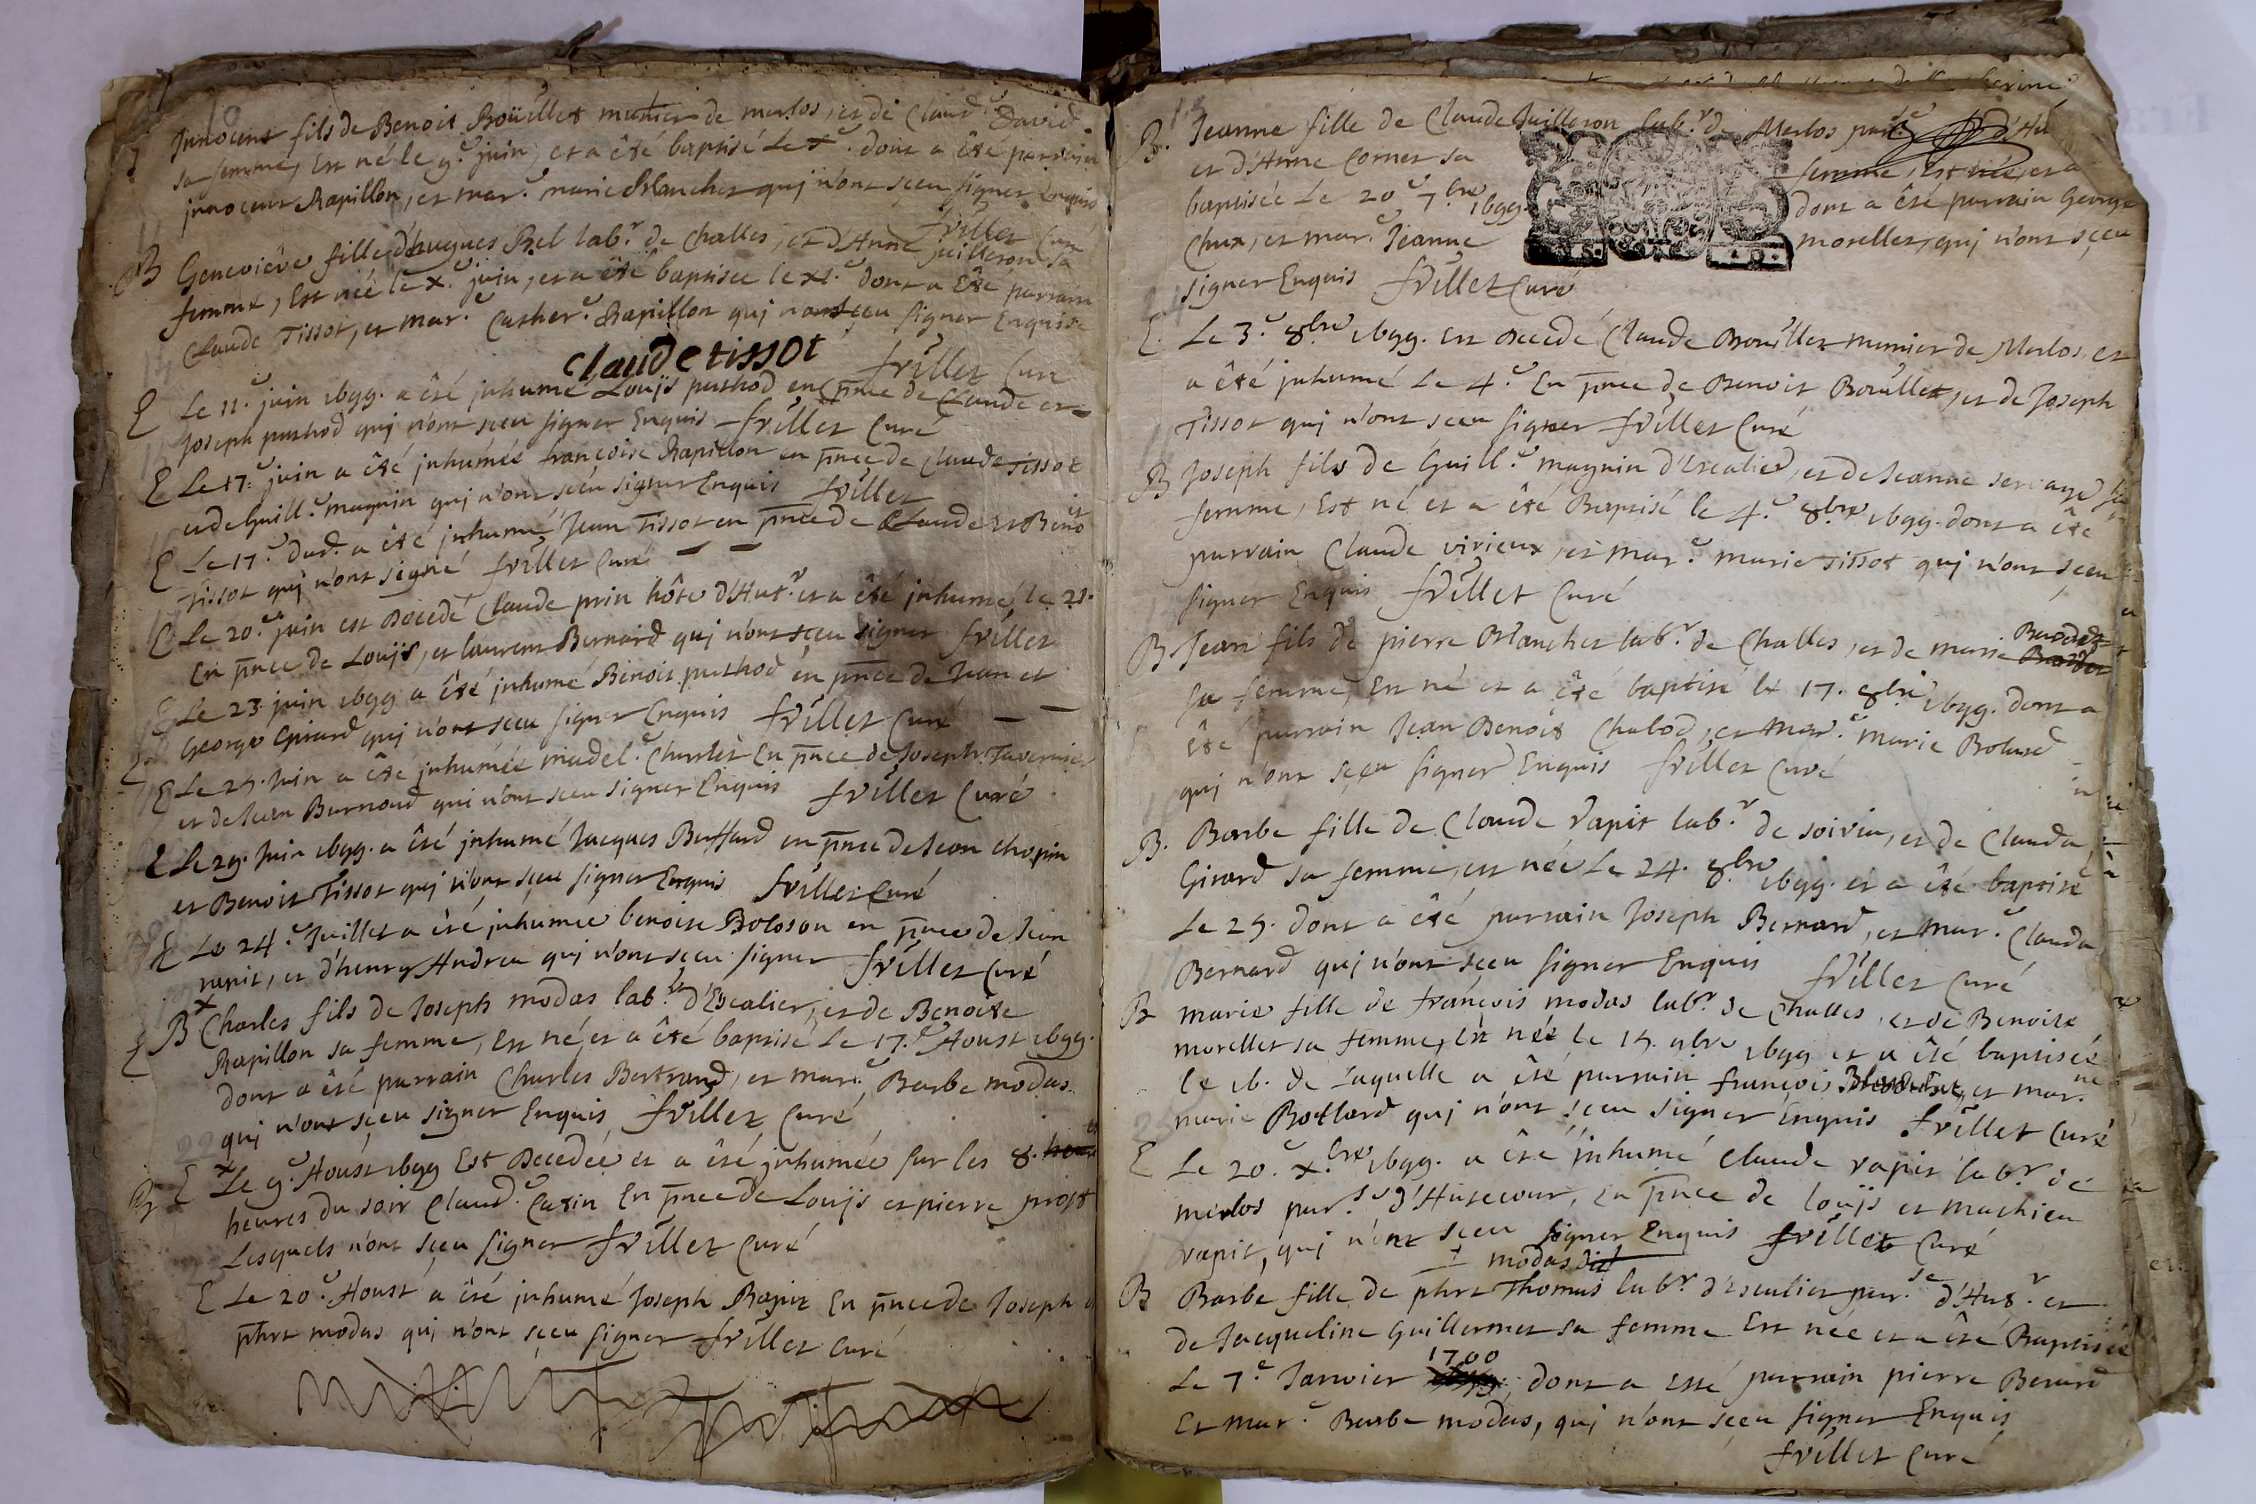 Innocent fils de Benoit Boüillet munier de merlos, et de Claud.e David
sa femme, Est né le 9.e juin, et a êté baptisé Le x.e dont a êté parrain
jnnocent Rapillon, et mar.e marie Blanchet quj n'ont sçeu signer Enquis
frillet Curé
B Geneviève fille d'hugues Bel lab.r de Challes, et d'Anne Juilleron sa
femme, Est née le x.e juin, et a êté baptisée le xi.e dont a Êté parrain
Claude Tissot, et mar.e Cather.e Rapillon quj n'ont sçeu signer Enquise
claude tissot frillet Curé
E Le 11.e juin 1699. a êté jnhumé Louijs puthod en pnce de Claude et
Joseph puthod quj n'ont sçeu signer Enquis frillet Curé
E Le 17.e juin a êté jnhumée françoise Rapillon en pnce de Claude tissot
et de Guill.e magnin quj n'ont sçeu signer Enquis frillet
E Le 17.e dud. a êté jnhumé Jean Tissot en pnce de Claude et Benoit
Tissot quj n'ont signé frillet Curé
E Le 20.e juin est Décédé Claude prin hôte d'Hut.r et a êté jnhumé le 21.
En pnce de Louijs, et laurent Bernard quj n'ont sçeu signer frillet
E Le 23 juin 1699 a êté jnhumé Benoit puthod en pnce de Jean et
George Girard quj n'ont sçeu signer Enquis frillet Curé
E Le 25. Juin a êté jnhumée madel.e Charlet En pnce de Joseph Tavernier
et de Jean Burnoud qui n'ont sceu signer Enquis frillet Curé
E Le 29. Juin 1699. a êté jnhumé Jacques Buffard en pnce de Jean chapin
et Benoit Tissot quj n'ont sçeu signer Enquis frillet Curé
E Le 24.e Juillet a êté jnhumee benoite Boloson en pnce de Jean
rapit, et d'henry Andrea quj n'ont sçeu signer frillet Curé
B x Charles fils de Joseph modas lab.r d'Escalier, et de Benoîte
Rapillon sa femme, Est né, et a êté baptisé Le 17.e Aoust 1699.
dont a êté parrain Charles Bertrand, et mar.e Barbe modas.
quj n'ont sçeu signer Enquis frillet Curé
E x Le 9.e Aoust 1699 Est Décédée et a êté jnhumée sur les 8.
heures du soir Claud.e Catin En pnce de Louijs et pierre prost
Lesquels n'ont sçeu signer frillet Curé
E Le 20.e Aoust a êté jnhumé Joseph Rapit En pnce de Joseph et
phrt modas quj n'ont sçeu signer frillet curé
B. Jeanne fille de Claude Juilleron lab.r d Merlos par.se d'Hut
et d'Anne Cornet sa femme, Est née, et a
baptisée Le 20.e 7.bre 1699. dont a êté parrain George
Chux, et mar.e Jeanne morellet, quj n'ont sçeu
signer Enquis frillet Curé
E. Le 3.e 8.bre 1699. Est Décédé Claude Bouillet munier de Merlos, et
a êté jnhumé Le 4.e En pnce de Benoit Bouillet, et de Joseph
Tissot quj n'ont sceu signer frillet Curé
B Joseph fils de Guill.e magnin d'Escalier, et de Jeanne servage sa
femme, Est né et a êté Baptisé le 4.e 8bre 1699. dont a êté
parrain Claude virieux, et mar.e marie tissot quj n'ont sçeu
signer Enquis frillet Curé
B. Jean fils de pierre Blanchet lab.r de Challes, et de marie
sa femme, Est né et a êté baptisé le 17. 8bre 1699. dont a
Êté parrain Jean Benoit Chabod, et mar.e marie Bolard
quj n'ont sçeu signer Enquis frillet Curé
B. Barbe fille de Claude Vapit lab.r de soiria, et de Clauda
Girard sa femme, est née Le 24. 8bre 1699. et a êté baptisée
Le 25. dont a êté parrain Joseph Bernard, et mar.e Clauda
Bernard quj n'ont sçeu signer Enquis frillet Curé
B marie fille de françois modas lab.r de Challes, et de Benoite
morellet sa femme, Est née le 15. 9bre 1699 et a êté baptisée
le 16. de Laquelle a êté parrain françois et mar.ne
marie Botlard quj n'ont sçeu signer Enquis frillet Curé
E Le 20.e x.bre 1699. a êté jnhumé Claude vapit lab.r de
merlos par.se d'Hutecour, En pnce de louijs et mathieu
vapit, quj n'ont sceu signer Enquis frillet Curé
+ modas dit
B Barbe fille de phrt Thomas lab.r d'Escalier par.se d'Hut.r et
de Jacqueline Guillermet sa femme Est née et a êté Baptisée
Le 7.e Janvier 1700 dont a esté parrain pierre Berard
Et mar.e Barbe modas, quj n'ont sçeu signer Enquis
frillet Curé